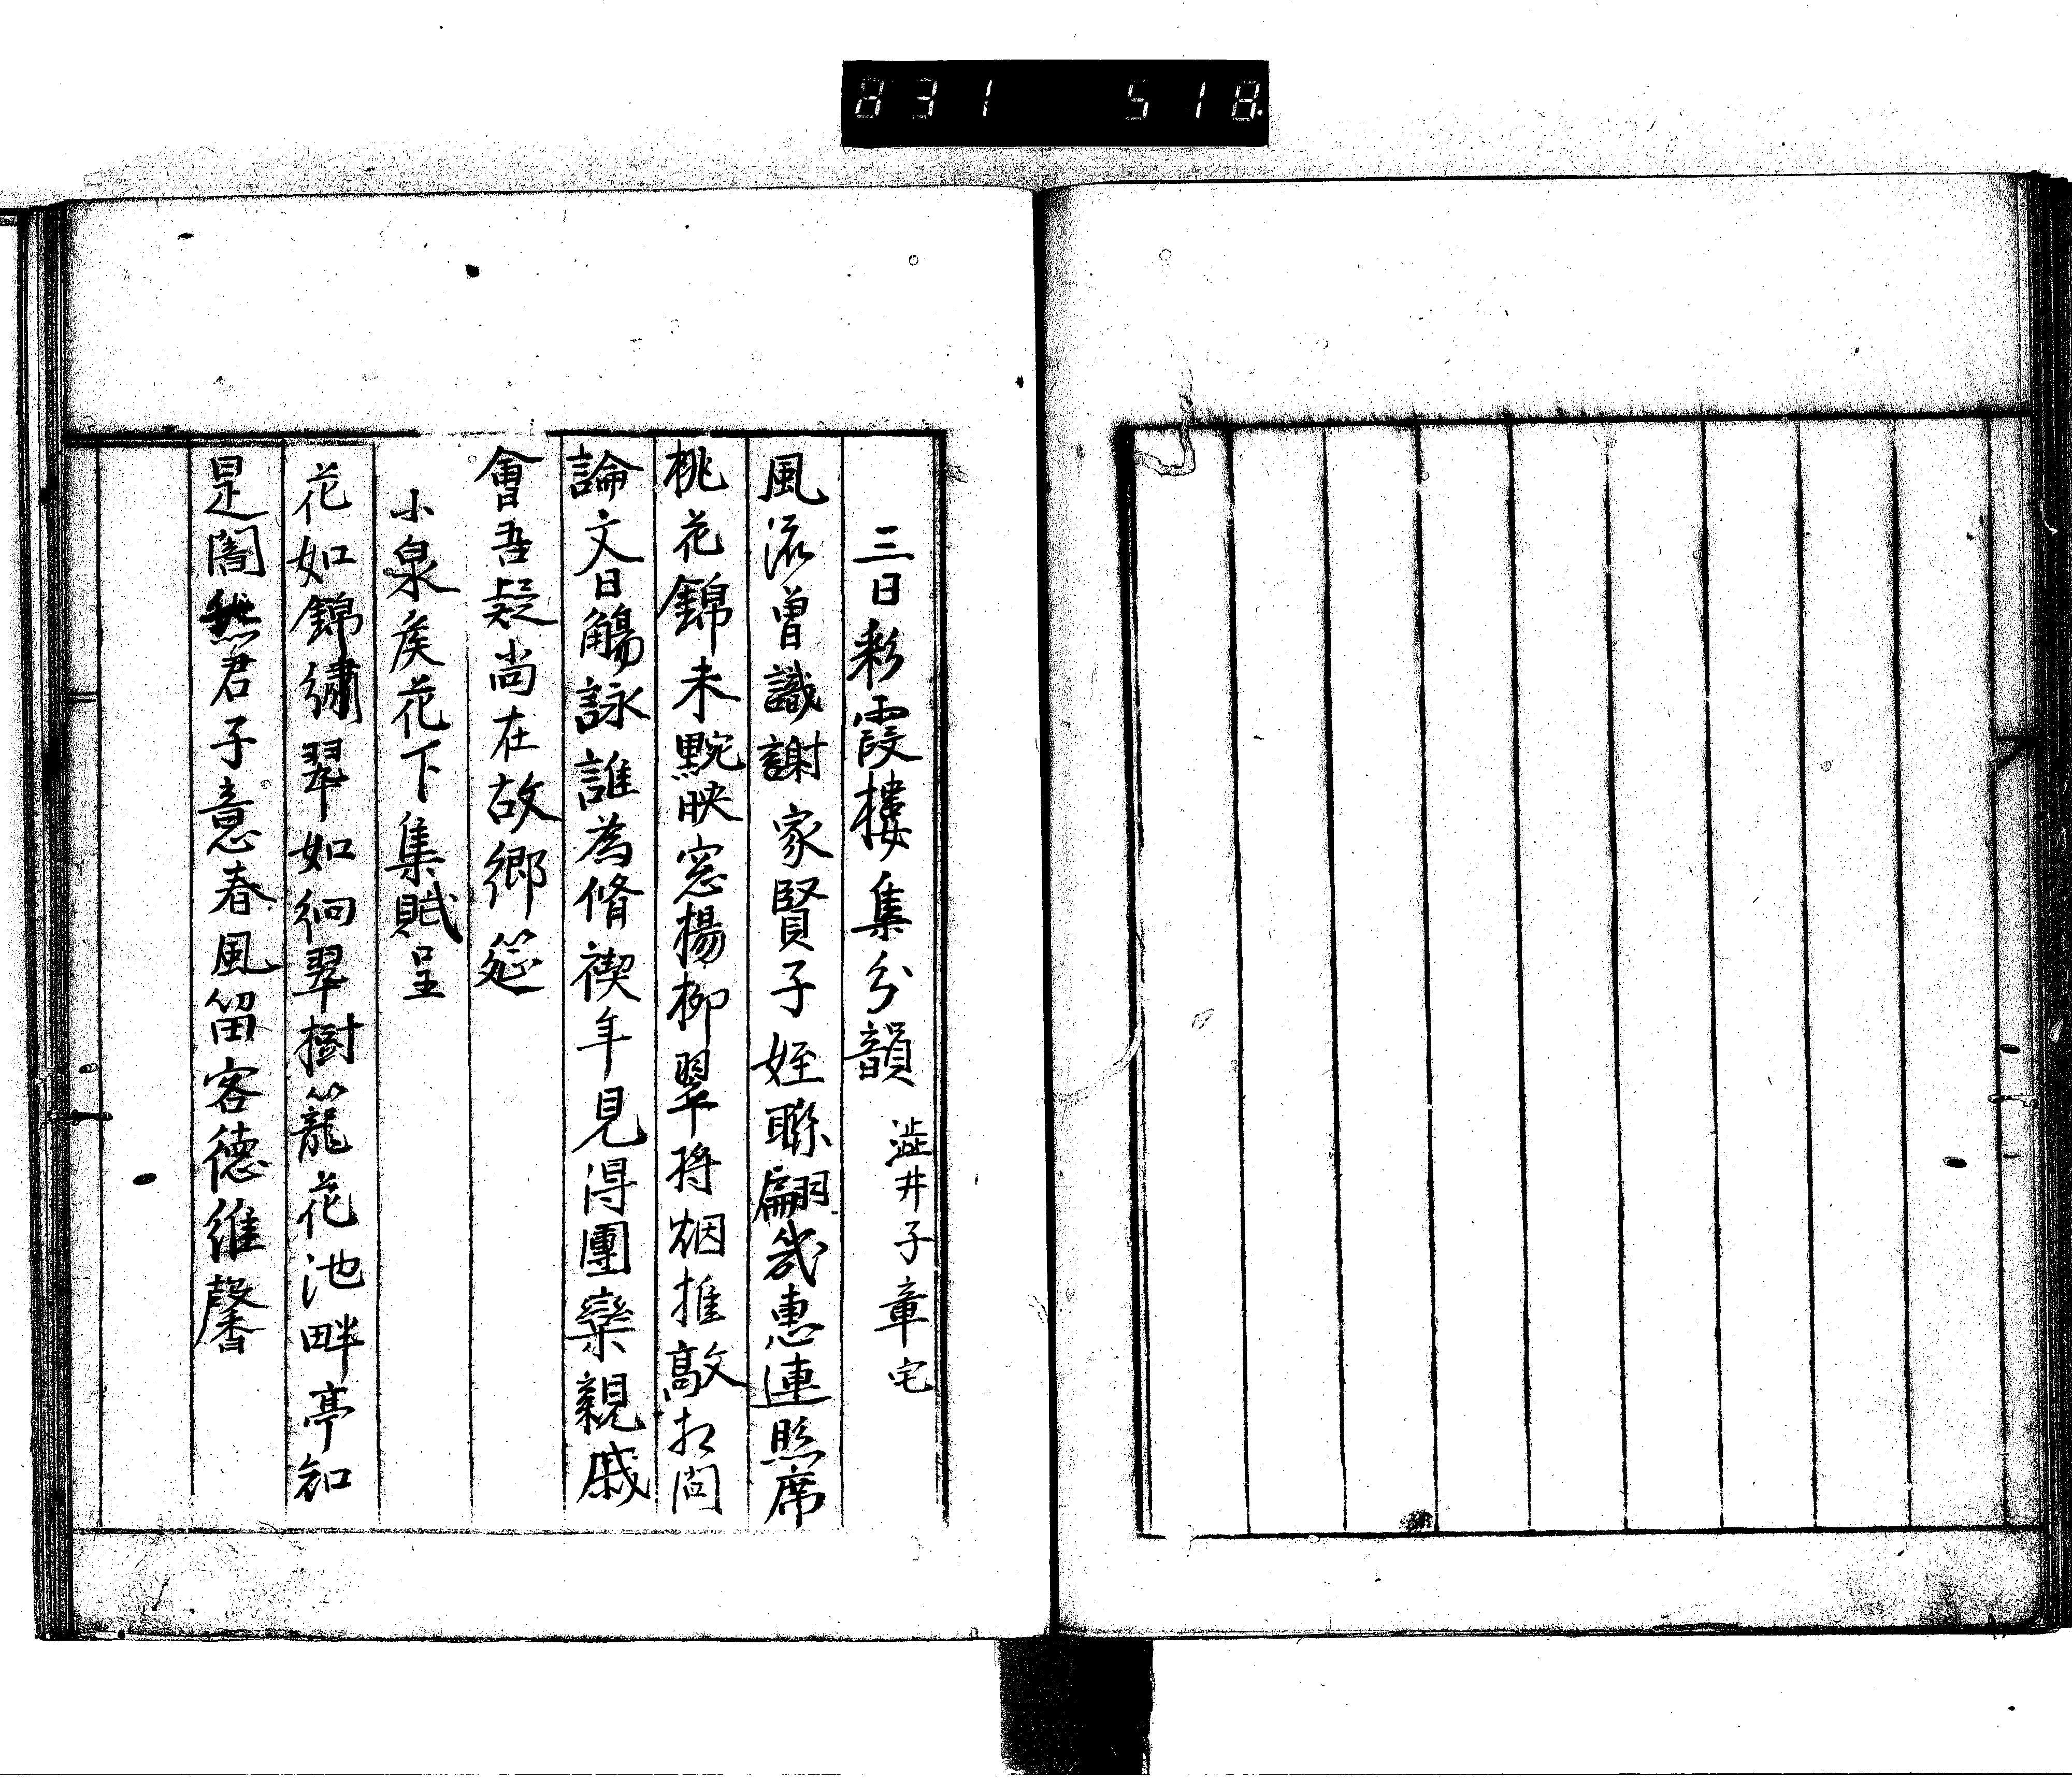 831 518.
三日彩霞樓集分韻 澁井子章宅
風流曽識謝家賢子姪聮翩幾惠連照席
桃花錦未黦映窓楊柳翠将烟推敲相問
論文日觴詠誰為脩禊年見得團欒親戚
會吾疑尚在故郷筵
小泉矦花下集賦呈
花如錦繍翠如徊翠樹籠花池畔亭知
是闇然君子意春風留客德維馨